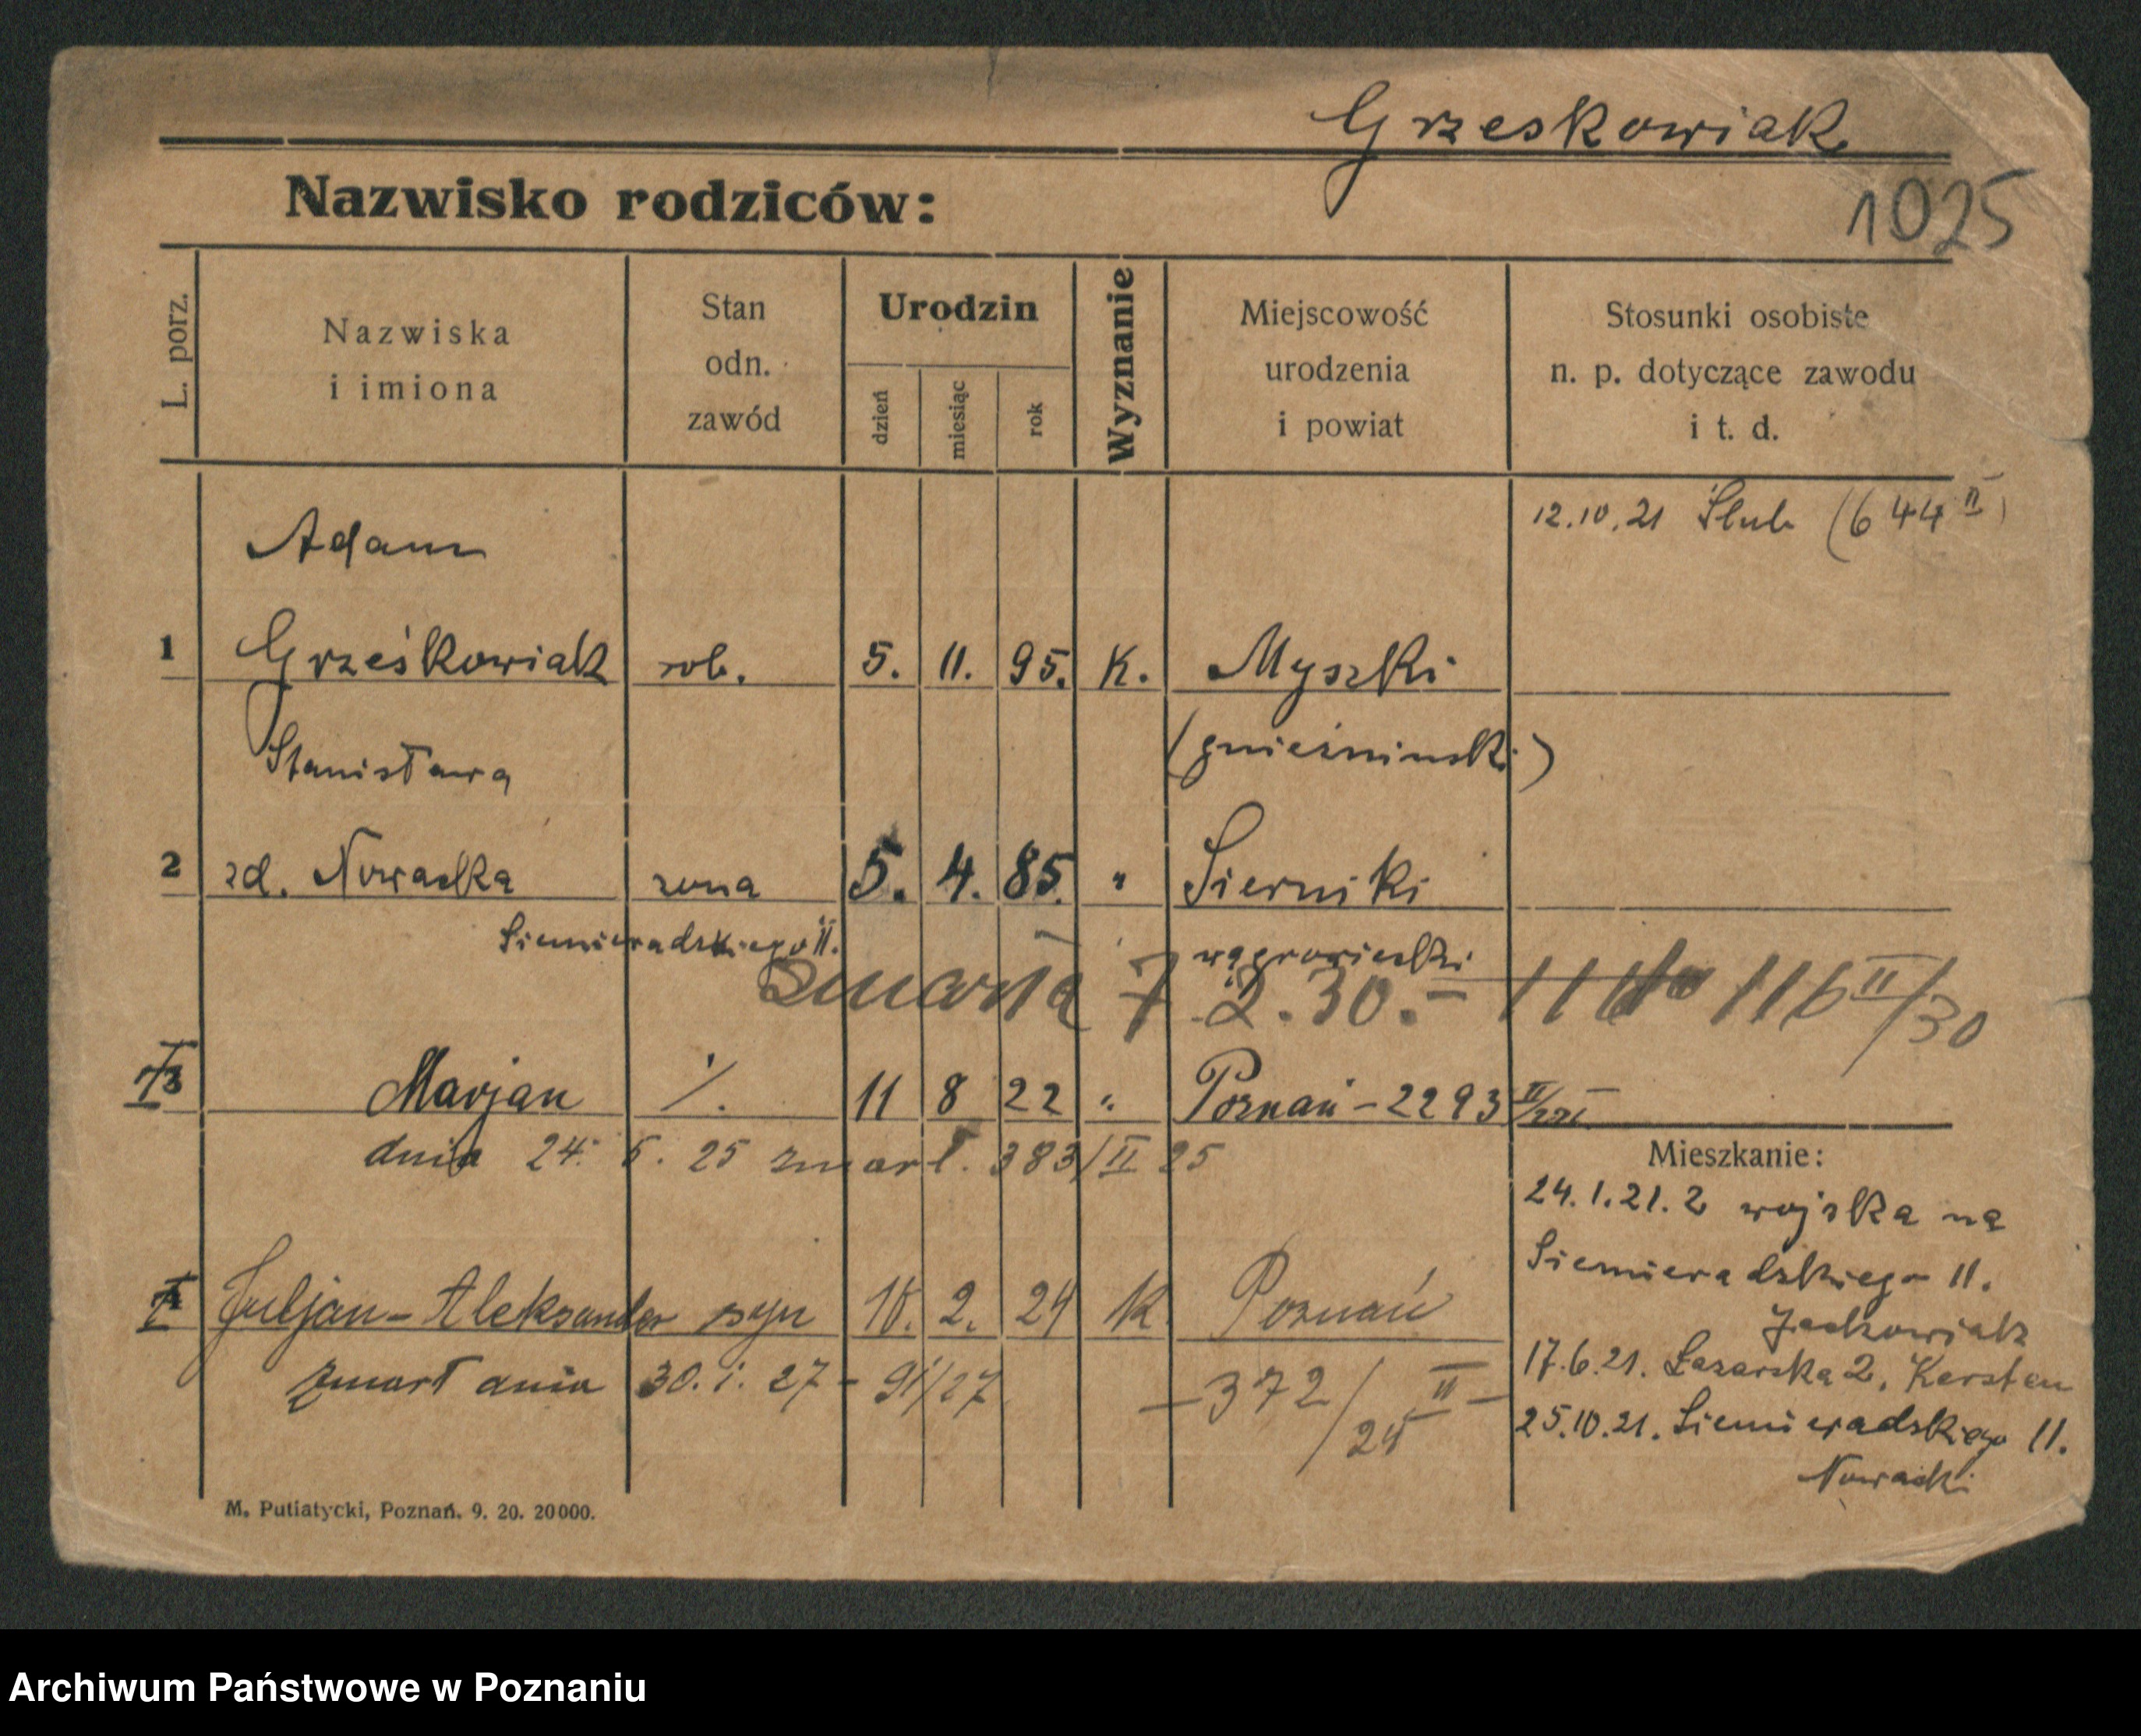 Grzeskowiak
Nazwisko rodziców:
1025
L. porz.
Nazwiska
i imiona
Stan
odn.
zawód
Urodzin
dzień
miesiąc
rok
Wyznanie
Miejscowość
urodzenia
i powiat
Stosunki osobiste
n. p. dotyczące zawodu
i t. d.
12.10.21 Ślub (644 II)
Adam
1 Grześkowiak rob. 5. 11. 95. K. Myszki
(gnieźninski)
Stanisława
2 zd. Nowacka zona 5. 4. 85. " Sierniki
Siemieradskiego 11. wągrowiecki
zmarła 7 2. 30. – 116 II/30
3 Marjan ·/. 11 8 22 " Poznań – 2293 II/22
dnia 24. 5. 25 zmarł. 383/II 25
Juljan – Aleksander syn 18. 2. 24 K Poznań
zmarł dnia 30. i. 27 – 91/27 – 372/24 II –
Mieszkanie:
24.1.21. z wojska na
Siemieradzkiego 11.
Jackowiak
17.6.21. Łazarska 2, Kersten
25.10.21. Siemieradskiego 11.
Nowacki
M. Putiatycki, Poznań. 9. 20. 20000.
Archiwum Państwowe w Poznaniu